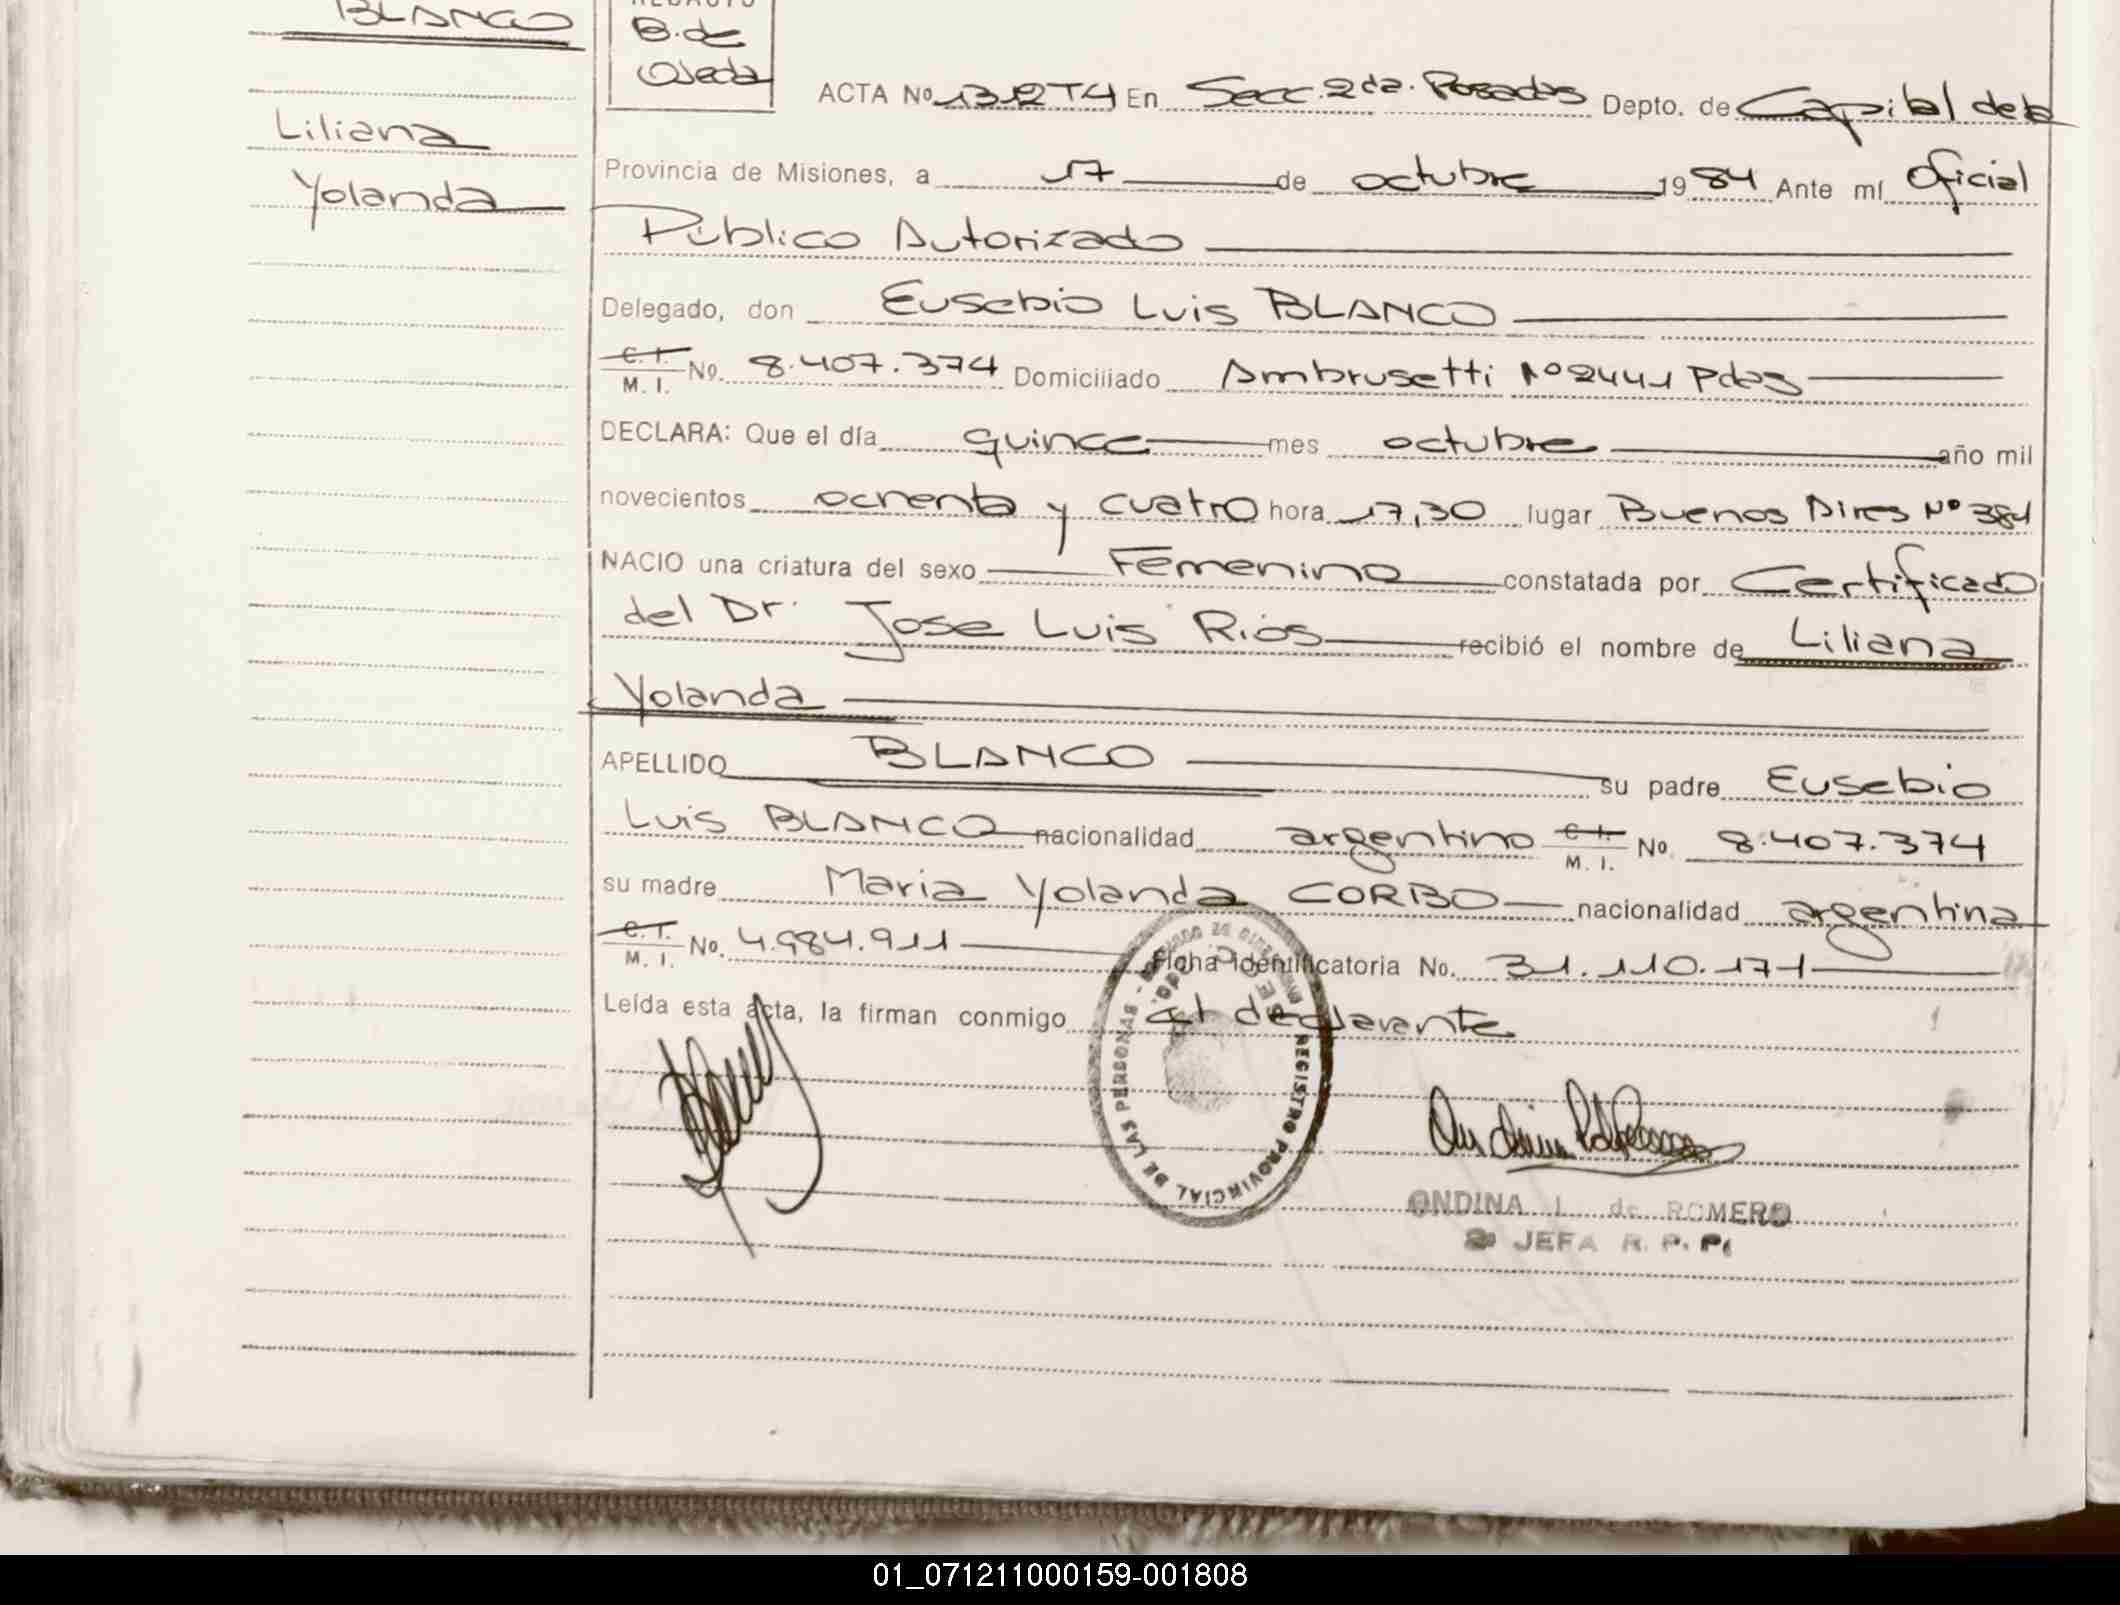 BLANCO
Liliana
Yolanda
REDACTO
B. de
Ojeda
ACTA Nº 1312T4 En Secc. 2da. Posadas Depto. de Capital de la
Provincia de Misiones, a 17 de octubre 1984 Ante mí Oficial
Público Autorizado
Delegado, don Eusebio Luis BLANCO
C. I.
M. I. Nº. 8.407.374 Domiciliado Ambrusetti Nº 2441 Pdas
DECLARA: Que el día quince mes octubre año mil
novecientos ochenta y cuatro hora 17,30 lugar Buenos Aires Nº 381
NACIO una criatura del sexo Femenino constatada por Certificado
del Dr. Jose Luis Rios recibió el nombre de Liliana
Yolanda
APELLIDO BLANCO su padre Eusebio
Luis BLANCO nacionalidad argentino C. I.
M. I. Nº. 8.407.374
su madre Maria Yolanda CORBO nacionalidad argentina
C. I.
M. I. Nº. 4.984.911 Ficha identificatoria No. 31.110.171
Leída esta acta, la firman conmigo el declarante
REGISTRO PROVINCIAL DE LAS PERSONAS
ONDINA I. de ROMERO
JEFA R. P. P.
01_071211000159-001808